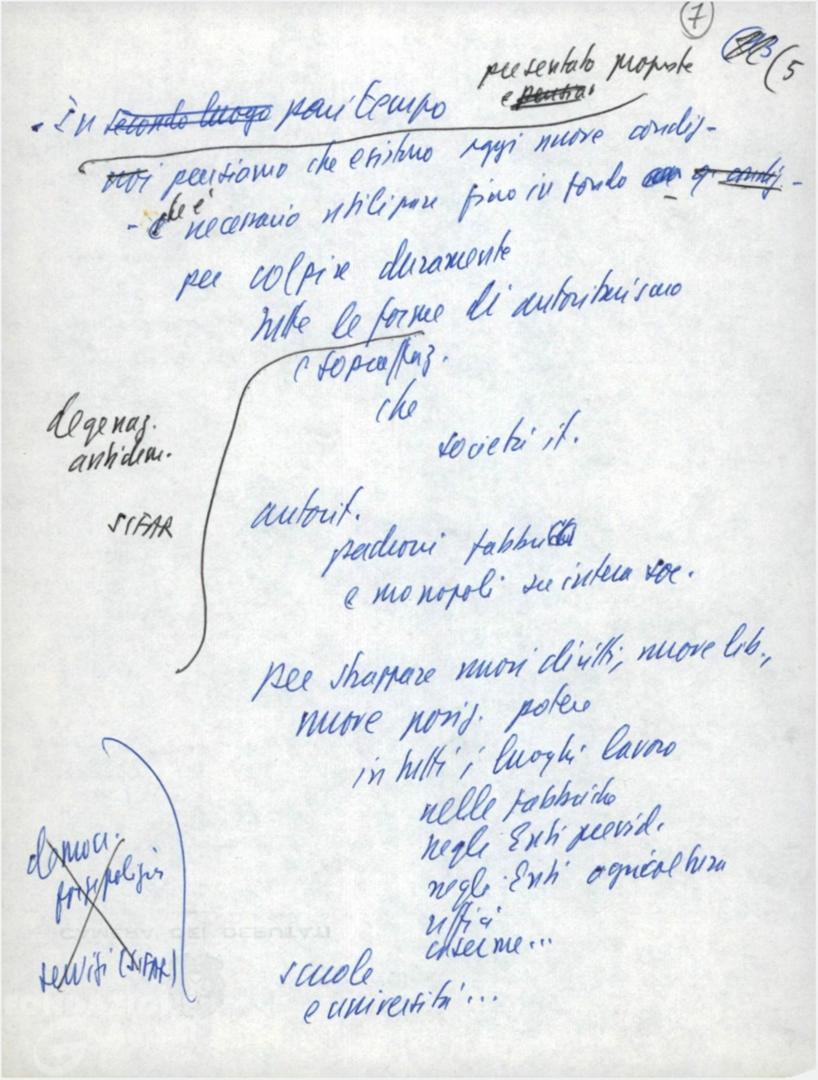 7
(5
presentato proposte
e pensia
. In secondo luogo pari tempo
noi pensiamo che esistono oggi nuove condiz-
che è
- è necessario utilizzare fino in fondo q. condiz. -
per colpire duramente
tutte le forme di autoritarismo
e sopraffaz.
che
società it.
degenaz.
antidem.
SIFAR
autorit.
padroni fabbrica
e monopoli su intera soc.
per strappare nuovi diritti, nuove lib.,
nuove posiz. potere
in tutti i luoghi lavoro
nelle fabbriche
negli Enti previd.
negli Enti agricoltura
uffici
caserme...
democr.
forze polizia
servizi (SIFAR)
scuole
e università...
CAMERA DEI DEPUTATI